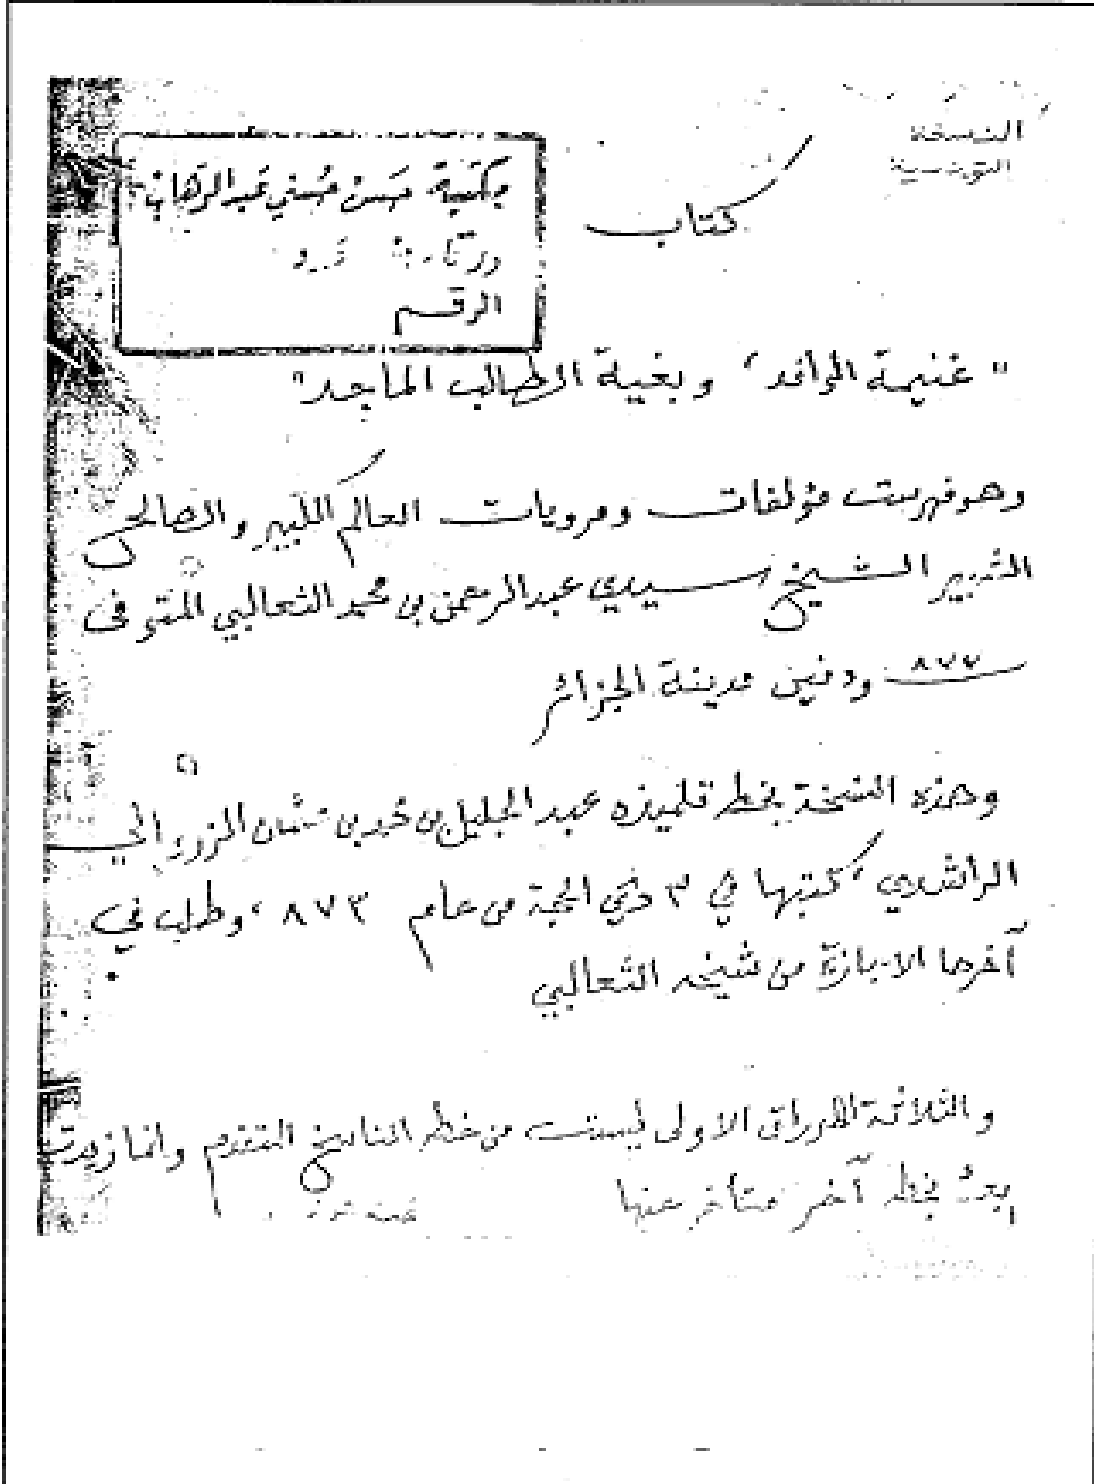 النسخة
التونسية
مكتبة حسن حسني عبد الوهاب
كتاب
الرقم
"غنيمة الوافد، وبغية الطالب الماجد"
وهو فهرست مؤلفات ومرويات العالم الكبير والصالح
الشهير الشيخ سيدي عبد الرحمن بن محمد الثعالبي المتوفى
٨٧٧ ودفين مدينة الجزائر
وهذه النسخة بخط تلميذه عبد الجليل بن محمد بن عثمان الزروالي
الراشدي، كتبها في ٣ ذي الحجة من عام ٨٧٣، وطلب في
آخرها الاجازة من شيخه الثعالبي
والثلاثة الاوراق الاولى ليست من خط الناسخ المتقدم وانما زيدت
بعد بخط آخر متأخر عنها